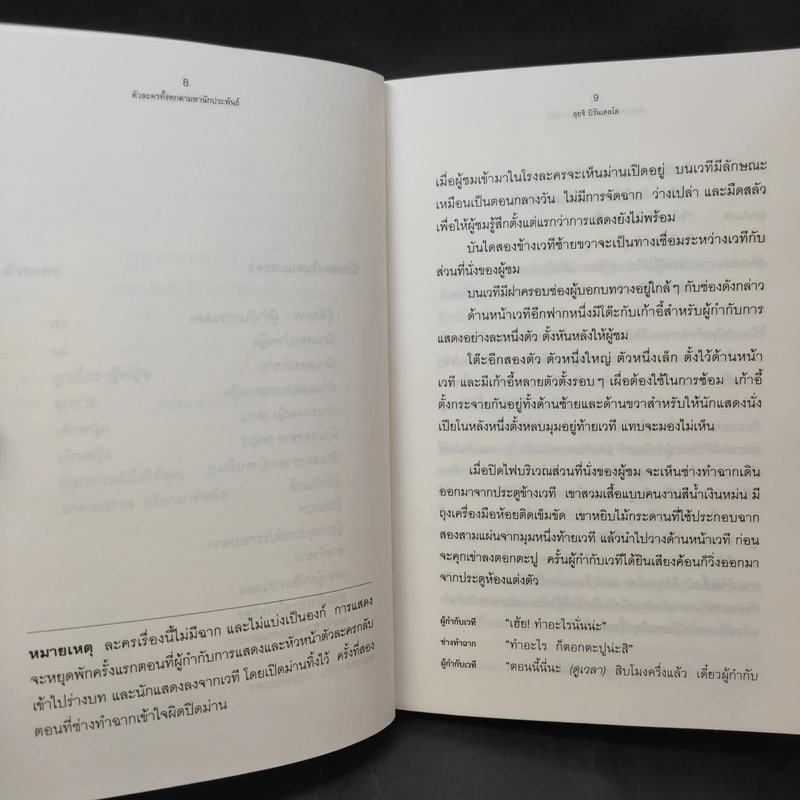 8
ตัวละครทั้งหกตามหานักประพันธ์
หมายเหตุ ละครเรื่องนี้ไม่มีฉาก และไม่แบ่งเป็นองก์ การแสดง
จะหยุดพักครั้งแรกตอนที่ผู้กำกับการแสดงและหัวหน้าตัวละครกลับ
เข้าไปร่างบท และนักแสดงลงจากเวที โดยเปิดม่านทิ้งไว้ ครั้งที่สอง
ตอนที่ช่างทำฉากเข้าใจผิดปิดม่าน
9
ลุยจิ ปิรันเดลโล
เมื่อผู้ชมเข้ามาในโรงละครจะเห็นม่านเปิดอยู่ บนเวทีมีลักษณะ
เหมือนเป็นตอนกลางวัน ไม่มีการจัดฉาก ว่างเปล่า และมืดสลัว
เพื่อให้ผู้ชมรู้สึกตั้งแต่แรกว่าการแสดงยังไม่พร้อม
บันไดสองข้างเวทีซ้ายขวาจะเป็นทางเชื่อมระหว่างเวทีกับ
ส่วนที่นั่งของผู้ชม
บนเวทีมีฝาครอบช่องผู้บอกบทวางอยู่ใกล้ๆ กับช่องดังกล่าว
ด้านหน้าเวทีอีกฟากหนึ่งมีโต๊ะกับเก้าอี้สำหรับผู้กำกับการ
แสดงอย่างละหนึ่งตัว ตั้งหันหลังให้ผู้ชม
โต๊ะอีกสองตัว ตัวหนึ่งใหญ่ ตัวหนึ่งเล็ก ตั้งไว้ด้านหน้า
เวที และมีเก้าอี้หลายตัวตั้งรอบๆ เผื่อต้องใช้ในการซ้อม เก้าอี้
ตั้งกระจายกันอยู่ทั้งด้านซ้ายและด้านขวาสำหรับให้นักแสดงนั่ง
เปียโนหลังหนึ่งตั้งหลบมุมอยู่ท้ายเวที แทบจะมองไม่เห็น
เมื่อเปิดไฟบริเวณส่วนที่นั่งของผู้ชม จะเห็นช่างทำฉากเดิน
ออกมาจากประตูข้างเวที เขาสวมเสื้อแบบคนงานสีน้ำเงินหม่น มี
ถุงเครื่องมือห้อยติดเข็มขัด เขาหยิบไม้กระดานที่ใช้ประกอบฉาก
สองสามแผ่นจากมุมหนึ่งท้ายเวที แล้วนำไปวางด้านหน้าเวที ก่อน
จะคุกเข่าลงตอกตะปู ครั้นผู้กำกับเวทีได้ยินเสียงค้อนก็วิ่งออกมา
จากประตูห้องแต่งตัว
ผู้กำกับเวที “เฮ้ย! ทำอะไรนั่นน่ะ”
ช่างทำฉาก “ทำอะไร ก็ตอกตะปูน่ะสิ”
ผู้กำกับเวที “ตอนนี้นี่นะ (ดูเวลา) สิบโมงครึ่งแล้ว เดี๋ยวผู้กำกับ